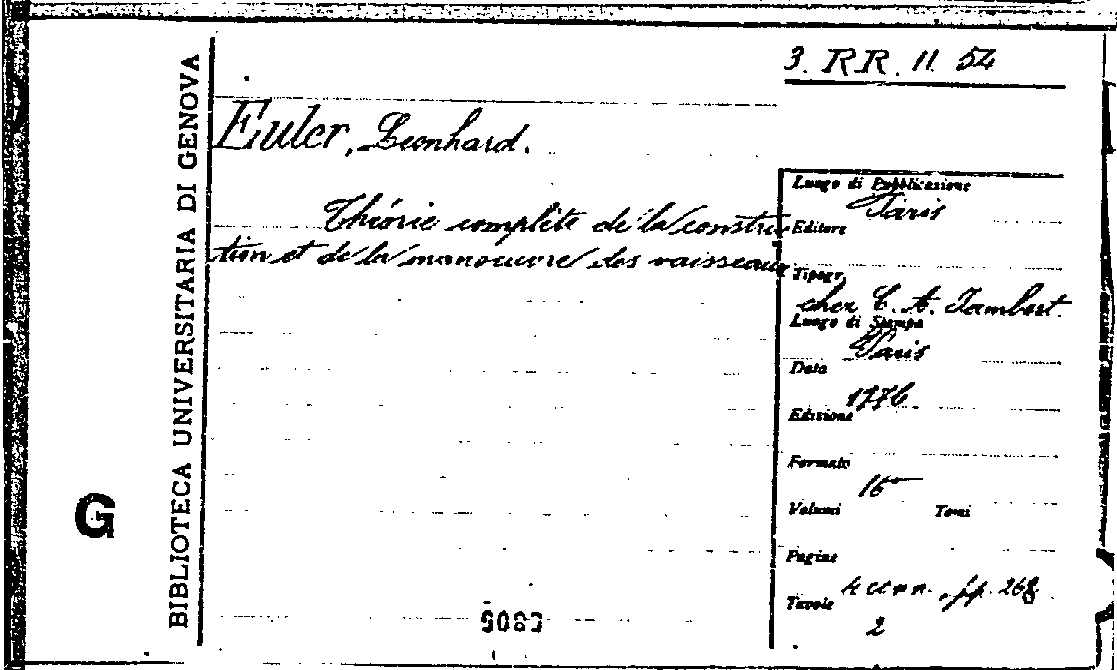 3. RR. 11. 54
BIBLIOTECA UNIVERSITARIA DI GENOVA
G
Euler, Leonhard.
Théorie complète de la construc
tion et de la manoeuvre des vaisseaux
Luogo di Pubblicazione
Paris
Editore
Tipogr.
chez C. A. Jombert.
Luogo di Stampa
Paris
Data
1776
Edizione
Formato
16°
Volumi Tomi
Pagine
4 c. n. n., pp. 268
Tavole
2